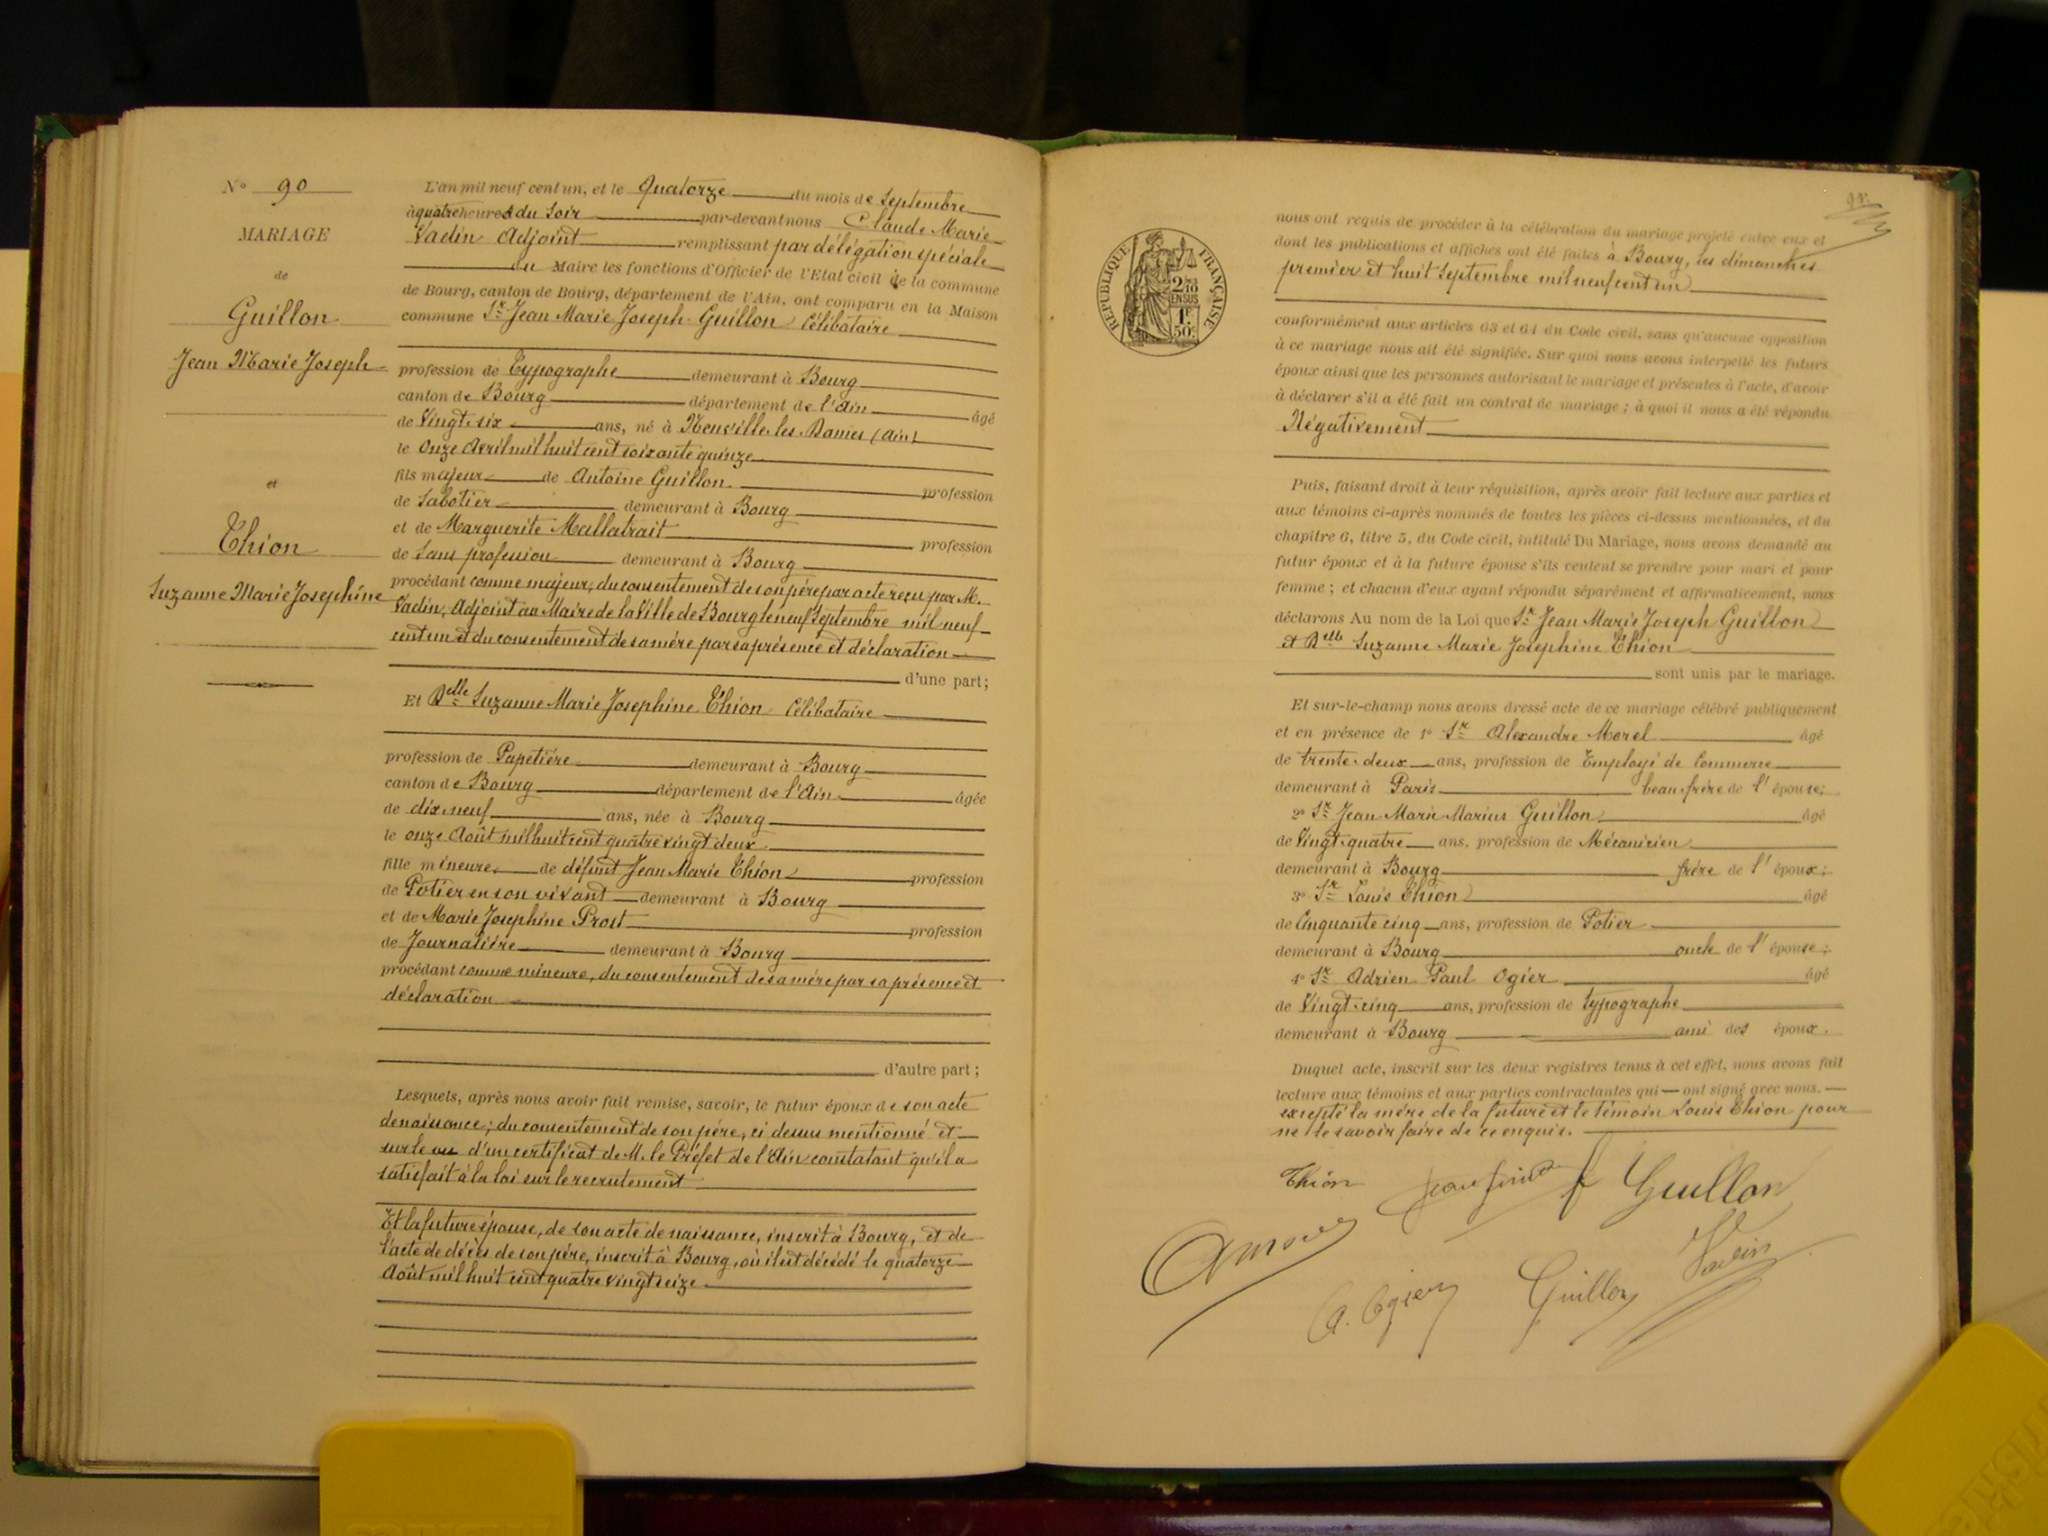 N° 90
MARIAGE
de
Guillon
Jean Marie Joseph
et
Thion
Suzanne Marie Josephine
L'an mil neuf cent un, et le Quatorze du mois de Septembre
à quatre heures du Soir par-devant nous Claude Marie
Vadin Adjoint remplissant par délégation spéciale
du Maire les fonctions d'Officier de l'Etat civil de la commune
de Bourg, canton de Bourg, département de l'Ain, ont comparu en la Maison
commune Sr Jean Marie Joseph Guillon Célibataire
profession de Typographe demeurant à Bourg
canton de Bourg département de l'Ain âgé
de Vingt-six ans, né à Neuville les Dames (Ain)
le onze Avril mil huit cent soixante quinze
fils majeur de Antoine Guillon profession
de Sabotier demeurant à Bourg
et de Marguerite Mallatrait profession
de Sans profession demeurant à Bourg
procédant comme majeur, du consentement de son père par acte reçu par M.
Vadin, Adjoint au Maire de la Ville de Bourg le neuf Septembre mil neuf
cent un et du consentement de sa mère par sa présence et déclaration
d'une part;
Et Delle Suzanne Marie Josephine Thion Célibataire
profession de Papetière demeurant à Bourg
canton de Bourg département de l'Ain âgée
de dix-neuf ans, née à Bourg
le onze Août mil huit cent quatre vingt deux
fille mineure de défunt Jean Marie Thion profession
de Potier en son vivant demeurant à Bourg
et de Marie Josephine Prost profession
de Journalière demeurant à Bourg
procédant comme mineure, du consentement de sa mère par sa présence et
déclaration
d'autre part;
Lesquels, après nous avoir fait remise, savoir, le futur époux de son acte
de naissance; du consentement de son père, ci dessus mentionné et
sur le vu d'un certificat de M. le Préfet de l'Ain constatant qu'il a
satisfait à la loi sur le recrutement
Et la future épouse, de son acte de naissance, inscrit à Bourg, et de
l'acte de décès de son père, inscrit à Bourg, où il est décédé le quatorze
Août mil huit cent quatre vingt seize
RÉPUBLIQUE FRANÇAISE
2/10
EN SUS
1F.
50c.
nous ont requis de procéder à la célébration du mariage projeté entre eux et
dont les publications et affiches ont été faites à Bourg, les dimanches
premier et huit Septembre mil neuf cent un
conformément aux articles 63 et 64 du Code civil, sans qu'aucune opposition
à ce mariage nous ait été signifiée. Sur quoi nous avons interpellé les futurs
époux ainsi que les personnes autorisant le mariage et présentes à l'acte, d'avoir
à déclarer s'il a été fait un contrat de mariage; à quoi il nous a été répondu
Négativement
Puis, faisant droit à leur réquisition, après avoir fait lecture aux parties et
aux témoins ci-après nommés de toutes les pièces ci-dessus mentionnées, et du
chapitre 6, titre 5, du Code civil, intitulé Du Mariage, nous avons demandé au
futur époux et à la future épouse s'ils veulent se prendre pour mari et pour
femme; et chacun d'eux ayant répondu séparément et affirmativement, nous
déclarons Au nom de la Loi que Sr Jean Marie Joseph Guillon
et Delle Suzanne Marie Josephine Thion
sont unis par le mariage.
Et sur-le-champ nous avons dressé acte de ce mariage célébré publiquement
et en présence de 1° Sr Alexandre Morel âgé
de trente-deux ans, profession de Employé de Commerce
demeurant à Paris beau-frère de l'épouse;
2° Sr Jean Marie Marius Guillon âgé
de Vingt-quatre ans, profession de Mécanicien
demeurant à Bourg frère de l'époux;
3° Sr Louis Thion âgé
de Cinquante cinq ans, profession de Potier
demeurant à Bourg oncle de l'épouse;
4° Sr Adrien Paul Ogier âgé
de Vingt-cinq ans, profession de Typographe
demeurant à Bourg ami des époux.
Duquel acte, inscrit sur les deux registres tenus à cet effet, nous avons fait
lecture aux témoins et aux parties contractantes qui ont signé avec nous.
excepté la mère de la future et le témoin Louis Thion pour
ne le savoir faire de ce enquis.
Thion
Guillon
A. Ogier
Guillon
Vadin